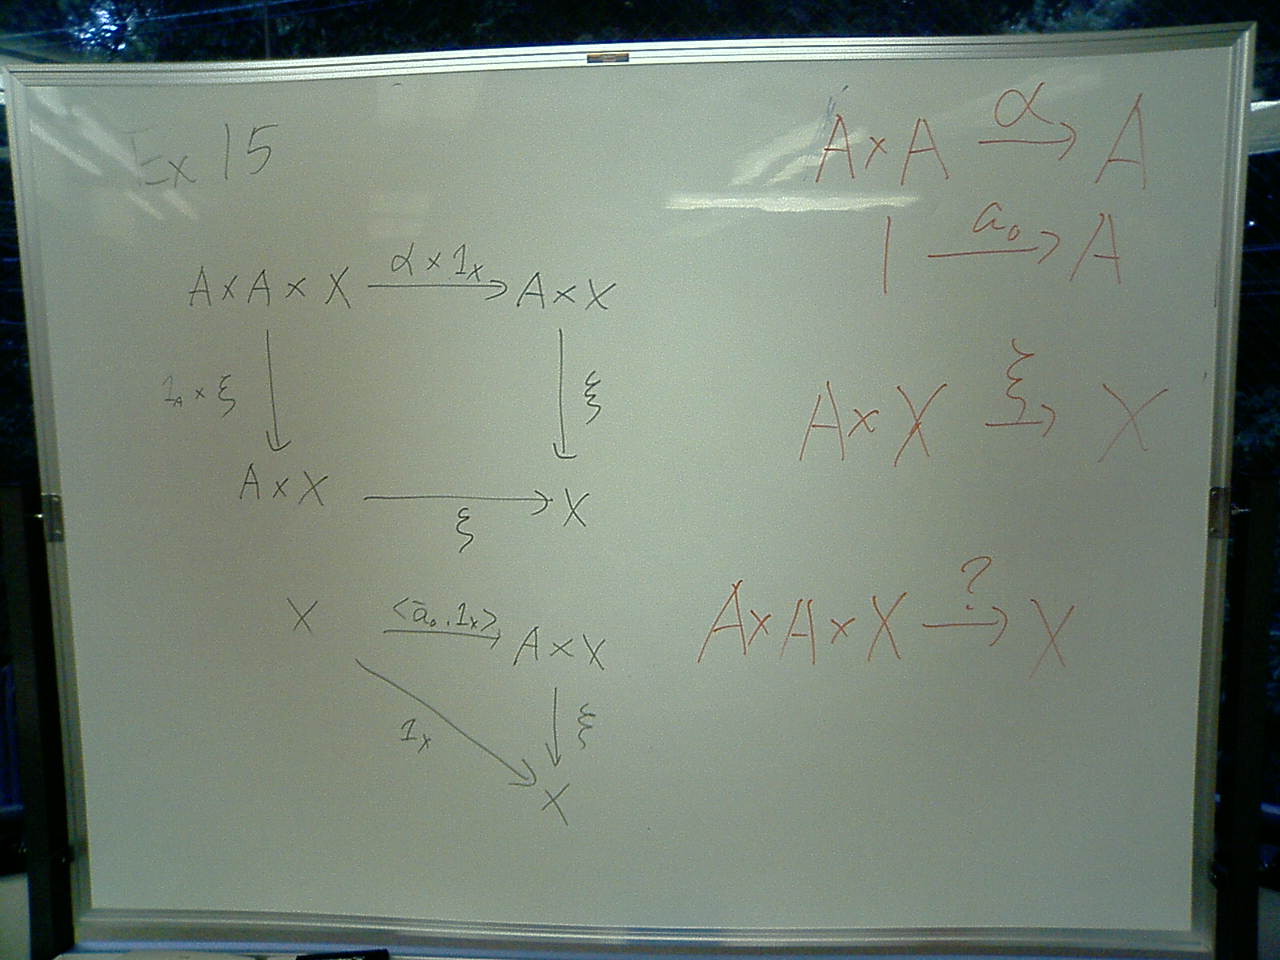 Ex 15
A×A×X α×1_X → A×X
1_A×ξ ↓ ↓ ξ
A×X → X
ξ
X <ā₀,1_X> → A×X
1_X ↘ ↓ ξ
X
A×A α → A
1 a₀ → A
A×X ξ → X
A×A×X ? → X